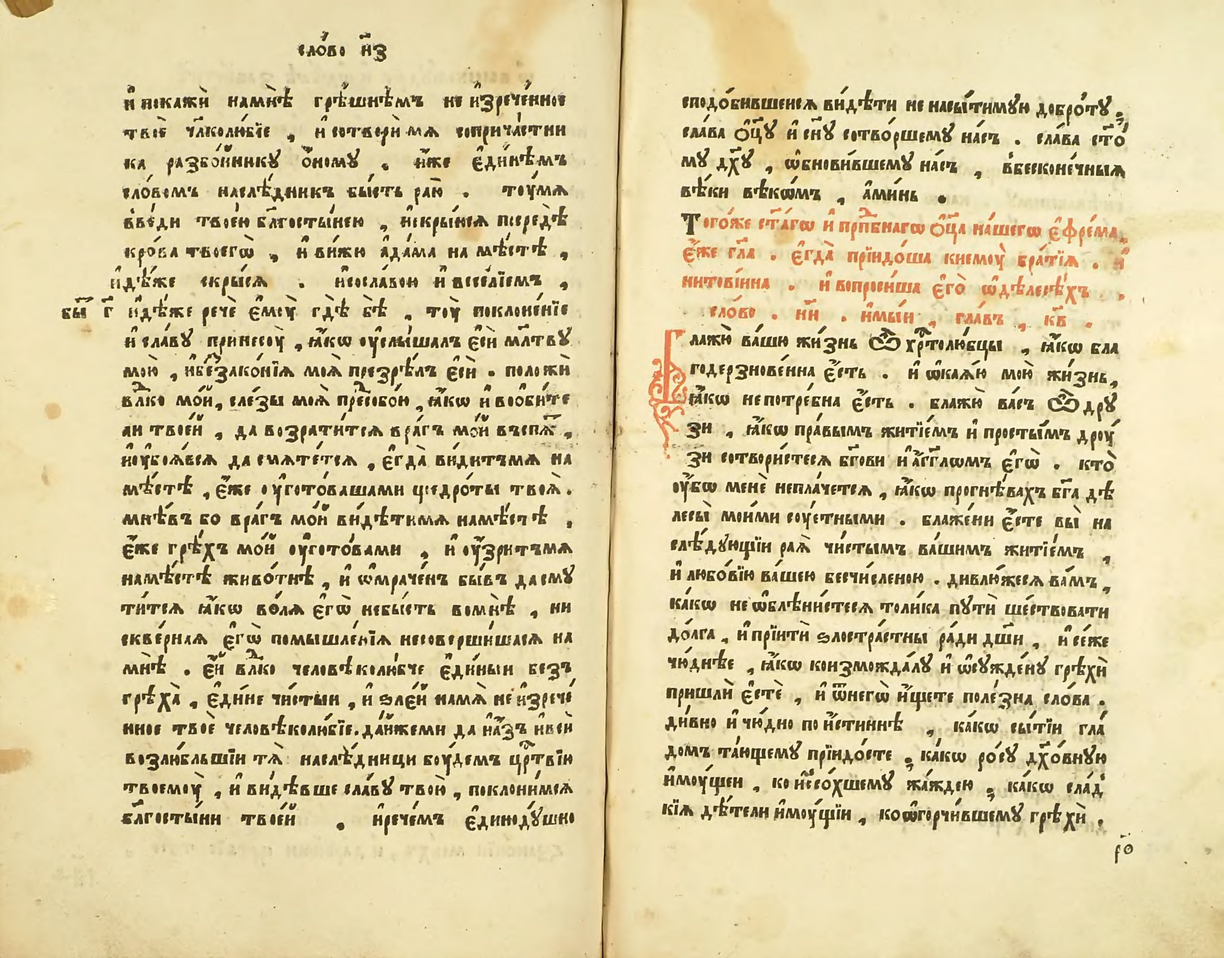 сло́во н҃з
и҆ покажѝ намнѣ̀ грѣ́шнѣмъ неи҆зрече́нное
твоѐ чл҃колю́бїе , и҆ сотвори́ мѧ соприча́стни
ка разбо́йнику ѻ҆́ному , и҆́же є҆ди́нѣмъ
сло́вомъ наслѣ́дникъ бы́сть раю̀ . тоу́мѧ
вве́ди твое́ю бл҃госты́нею , и҆скры́исѧ посредѣ̀
кро́ва твоегѡ̀ , и҆ ви́жи а҆да́ма на мѣ́стѣ ,
и҆дѣ́же скры́сѧ . и҆сосла́вою и҆ весе́лїемъ ,
бы҃ г҃ и҆дѣ́же речѐ є҆моу̀ гдѣ̀ бѣ̀ , тоу̀ поклоне́нїе
и҆ сла́ву принесоу̀ , ꙗ҆́кѡ оу҆слы́шалъ є҆сѝ мл҃тву
мою̀ , и҆беззако́нїѧ моѧ̀ презрѣ́лъ є҆сѝ . положѝ
влⷣко мо́й , сле́зы моѧ̀ пре́собою , ꙗ҆́кѡ и҆ воѡбѣ́те
ли твое́й , да возрати́тсѧ вра́гъ мо́й въспѧ́ть ,
и҆оубоѧ́всѧ да смѧте́тсѧ , є҆гда̀ ви́дитъмѧ на
мѣ́стѣ , є҆́же оу҆гото́вашами щедро́ты твоѧ̀ .
мнѣ́въ бо вра́гъ мо́й ви́дѣтимѧ намѣ́стѣ ,
є҆́же грѣ́хъ мо́й оу҆гото́вами , и҆ оу҆́зритъмѧ
намѣ́стѣ живо́тнѣ , и҆ ѡ҆мраче́нъ бы́въ дасму
ти́тсѧ ꙗ҆́кѡ во́лѧ є҆гѡ̀ небы́сть вомнѣ̀ , ни
скве́рнаѧ є҆гѡ̀ помышле́нїѧ несоверши́шасѧ на
мнѣ̀ . є҆́й влⷣко человѣколю́бче є҆ди́ныи безъ
грѣха̀ , є҆ди́не чи́стыи , и҆ ѕле́й намѧ̀ неи҆зрече́
нное твоѐ человѣколю́бїе.да́йжеми да и҆а҆́зъ и҆всѝ
возлю́бльшїи тѧ̀ наслѣ́дници боу́демъ црⷭ҇твїю
твоемоу̀ , и҆ ви́дѣвше сла́ву твою̀ , поклони́мсѧ
бл҃госты́ни твое́й . и҆рече́мъ є҆диноду́шно
сподо́бившеисѧ ви́дѣти не насы́тимую добро́ту ,
сла́ва ѻ҆ц҃у̀ и҆ сн҃у сотво́ршему на́съ . сла́ва ст҃о́
му дх҃у , ѡ҆бнови́вшему на́съ , вбесконе́чныѧ
вѣ́ки вѣкѡ́мъ , а҆ми́нь .
Тогѡ́же ст҃а́гѡ и҆ прпⷣбнагѡ ѻ҆ц҃а̀ на́шегѡ є҆фре́ма,
є҆́же гл҃а . є҆гда̀ прїидо́ша кнемоу̀ бра́тїѧ . и҆
нитові́нна . и҆ вопроси́ша є҆го̀ ѡ҆дѣ́лесѣхъ .
сло́во . н҃и . и҆мы́и , гла́въ , к҃в .
Блажю̀ ва́шю жи́знь ѽ хрⷭ҇толю́бцы , ꙗ҆́кѡ бла
годерзнове́нна є҆́сть . и҆ ѡ҆каю̀ мою̀ жи́знь,
ꙗ҆́кѡ непотре́бна є҆́сть . блажю̀ ва́съ ѽ дру
зи , ꙗ҆́кѡ пра́вымъ житїе́мъ и҆ просты́мъ дроу́
зи сотвори́стесѧ бг҃ови и҆ а҆́гг҃лѡмъ є҆гѡ̀ . кто̀
оу҆́бѡ менѐ непла́четсѧ , ꙗ҆́кѡ прогнѣ́вахъ бг҃а дѣ
лесы̀ мои́ми соу́етными . блаже́ни є҆стѐ вы̀ на
слѣ́дующїи ра́ѧ чи́стымъ ва́шимъ житїе́мъ ,
и҆ любо́вїю ва́шею бесчи́сленою . дивлю́жесѧ ва́мъ ,
ка́кѡ не ѡ҆блѣни́стесѧ толи́ка пути̑ ше́ствовати
до́лга , и҆ прїитѝ ѕлостра́стны ра́ди дш҃и , и҆ се́же
чю́днѣе , ꙗ҆́кѡ коизможда́лу и҆ ѡ҆сужде́ну грѣхѝ
пришлѝ є҆стѐ , и҆ ѿнегѡ̀ и҆́щете поле́зна сло́ва .
ди́вно и҆ чю́дно пои҆́стиннѣ , ка́кѡ сы́тїи гла́
домъ та́ющему прїидо́сте , ка́кѡ ро́су дх҃о́вную
и҆моу́щеи , кои҆со́хшему жа́ждею , ка́кѡ сла́д
кїѧ дѣ́тели и҆моу́щїи , коѡ҆го́рчившему грѣхѝ .
р҃ѳ